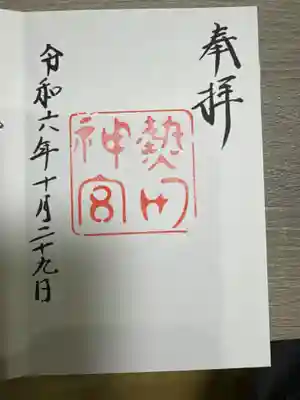 奉拝
熱田
神宮
令和六年十月二十九日